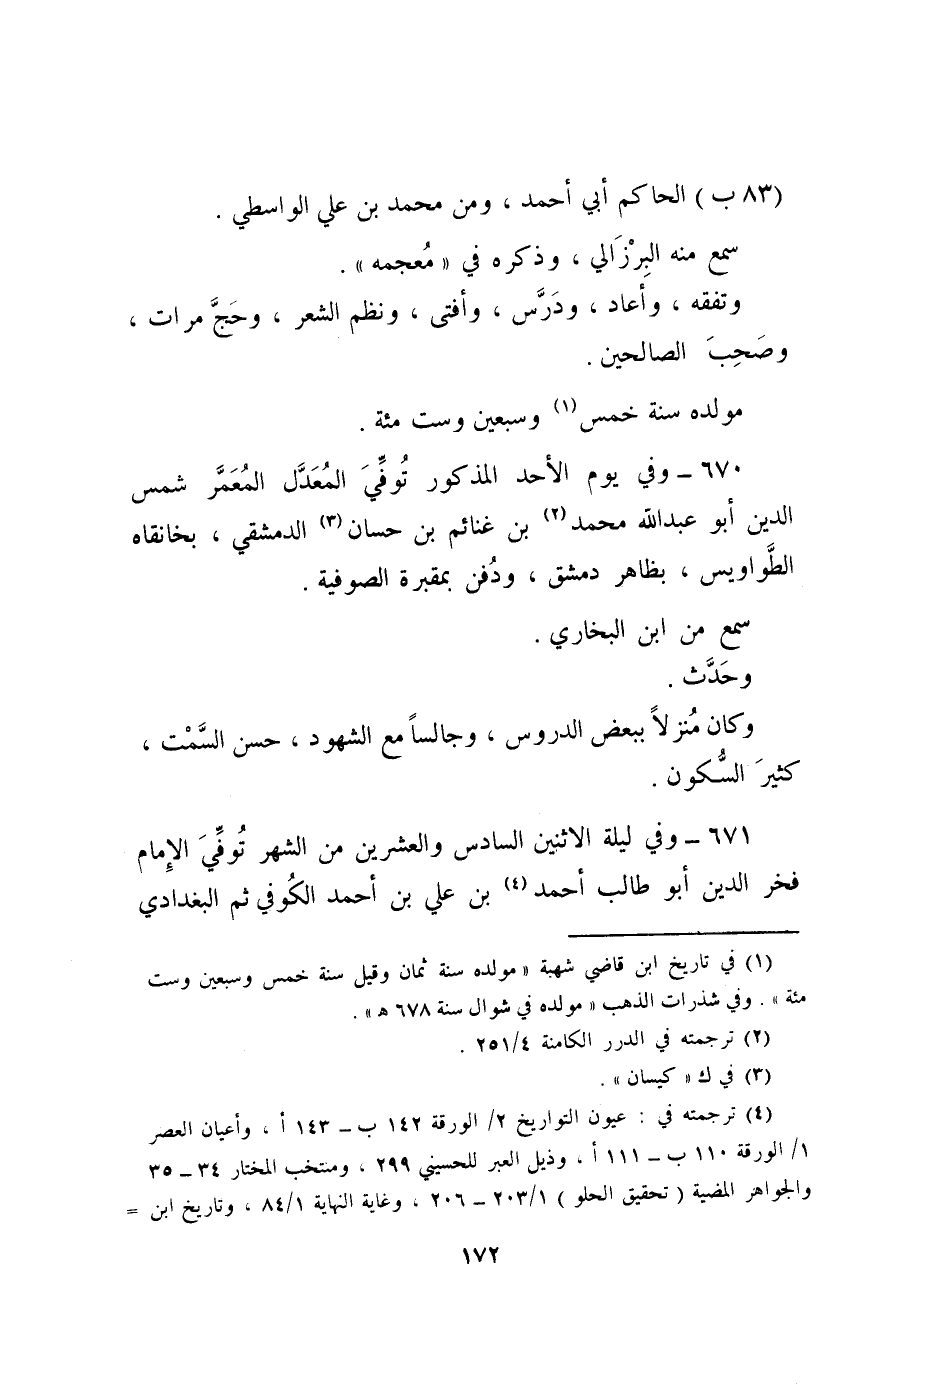 (٨٣ ب) الحاكم أبي أحمد ، ومن محمد بن علي الواسطي .
سمع منه البِرْزَالي ، وذكره في « مُعجمه » .
وتفقه ، وأعاد ، ودَرَّس ، وأفتى ، ونظم الشعر ، وحَجَّ مرات ،
وصَحِبَ الصالحين .
مولده سنة خمس(١) وسبعين وست مئة .
٦٧٠ ــ وفي يوم الأحد المذكور تُوفِّيَ المُعَدَّل المُعَمَّر شمس
الدين أبو عبدالله محمد(٢) بن غنائم بن حسان(٣) الدمشقي ، بخانقاه
الطَّواويس ، بظاهر دمشق ، ودُفن بمقبرة الصوفية .
سمع من ابن البخاري .
وحَدَّث .
وكان مُنزلاً ببعض الدروس ، وجالساً مع الشهود ، حسن السَّمْت ،
كثيرَ السُّكون .
٦٧١ ــ وفي ليلة الاثنين السادس والعشرين من الشهر تُوفِّيَ الإِمام
فخر الدين أبو طالب أحمد(٤) بن علي بن أحمد الكُوفي ثم البغدادي
(١) في تاريخ ابن قاضي شهبة « مولده سنة ثمان وقيل سنة خمس وسبعين وست
مئة » . وفي شذرات الذهب « مولده في شوال سنة ٦٧٨ هـ » .
(٢) ترجمته في الدرر الكامنة ٢٥١/٤ .
(٣) في ك « كيسان » .
(٤) ترجمته في : عيون التواريخ ٢/ الورقة ١٤٢ ب ــ ١٤٣ أ ، وأعيان العصر
١/ الورقة ١١٠ ب ــ ١١١ أ ، وذيل العبر للحسيني ٢٩٩ ، ومنتخب المختار ٣٤ ــ ٣٥
والجواهر المضية ( تحقيق الحلو ) ٢٠٣/١ ــ ٢٠٦ ، وغاية النهاية ٨٤/١ ، وتاريخ ابن =
١٧٢